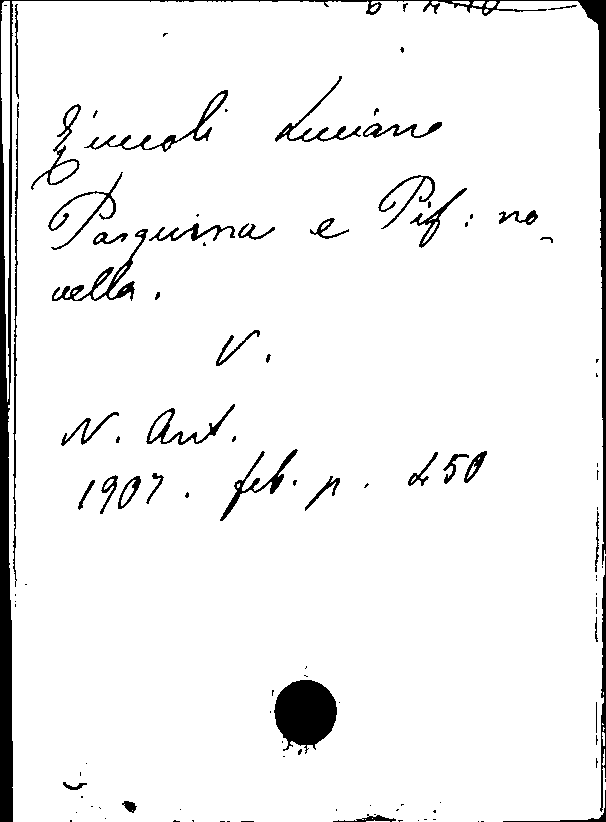 Zuccoli Luciano
Pasquina e Pif: no-
vella.
V.
N. Ant.
1907. feb. p. 450